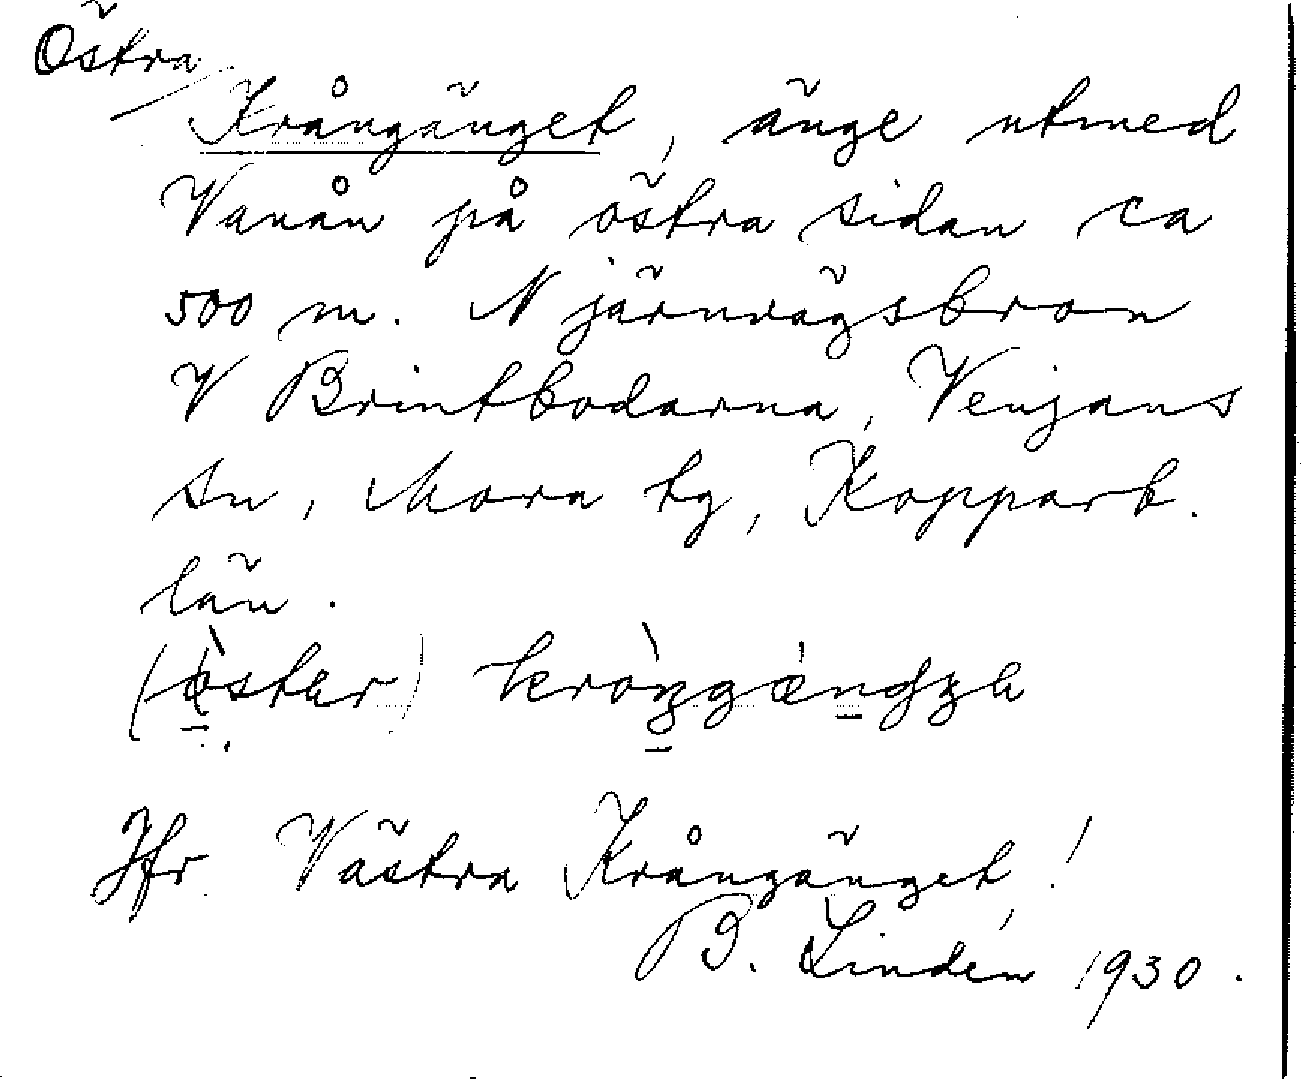 Östra
Krångänget, änge utmed
Vanån på östra sidan ca
500 m. N järnvägsbron
V Brintbodarna, Venjans
sn, Mora tg, Kopparb.
län.
(öster)
Jfr. Västra Krångänget!
B. Lindén 1930.